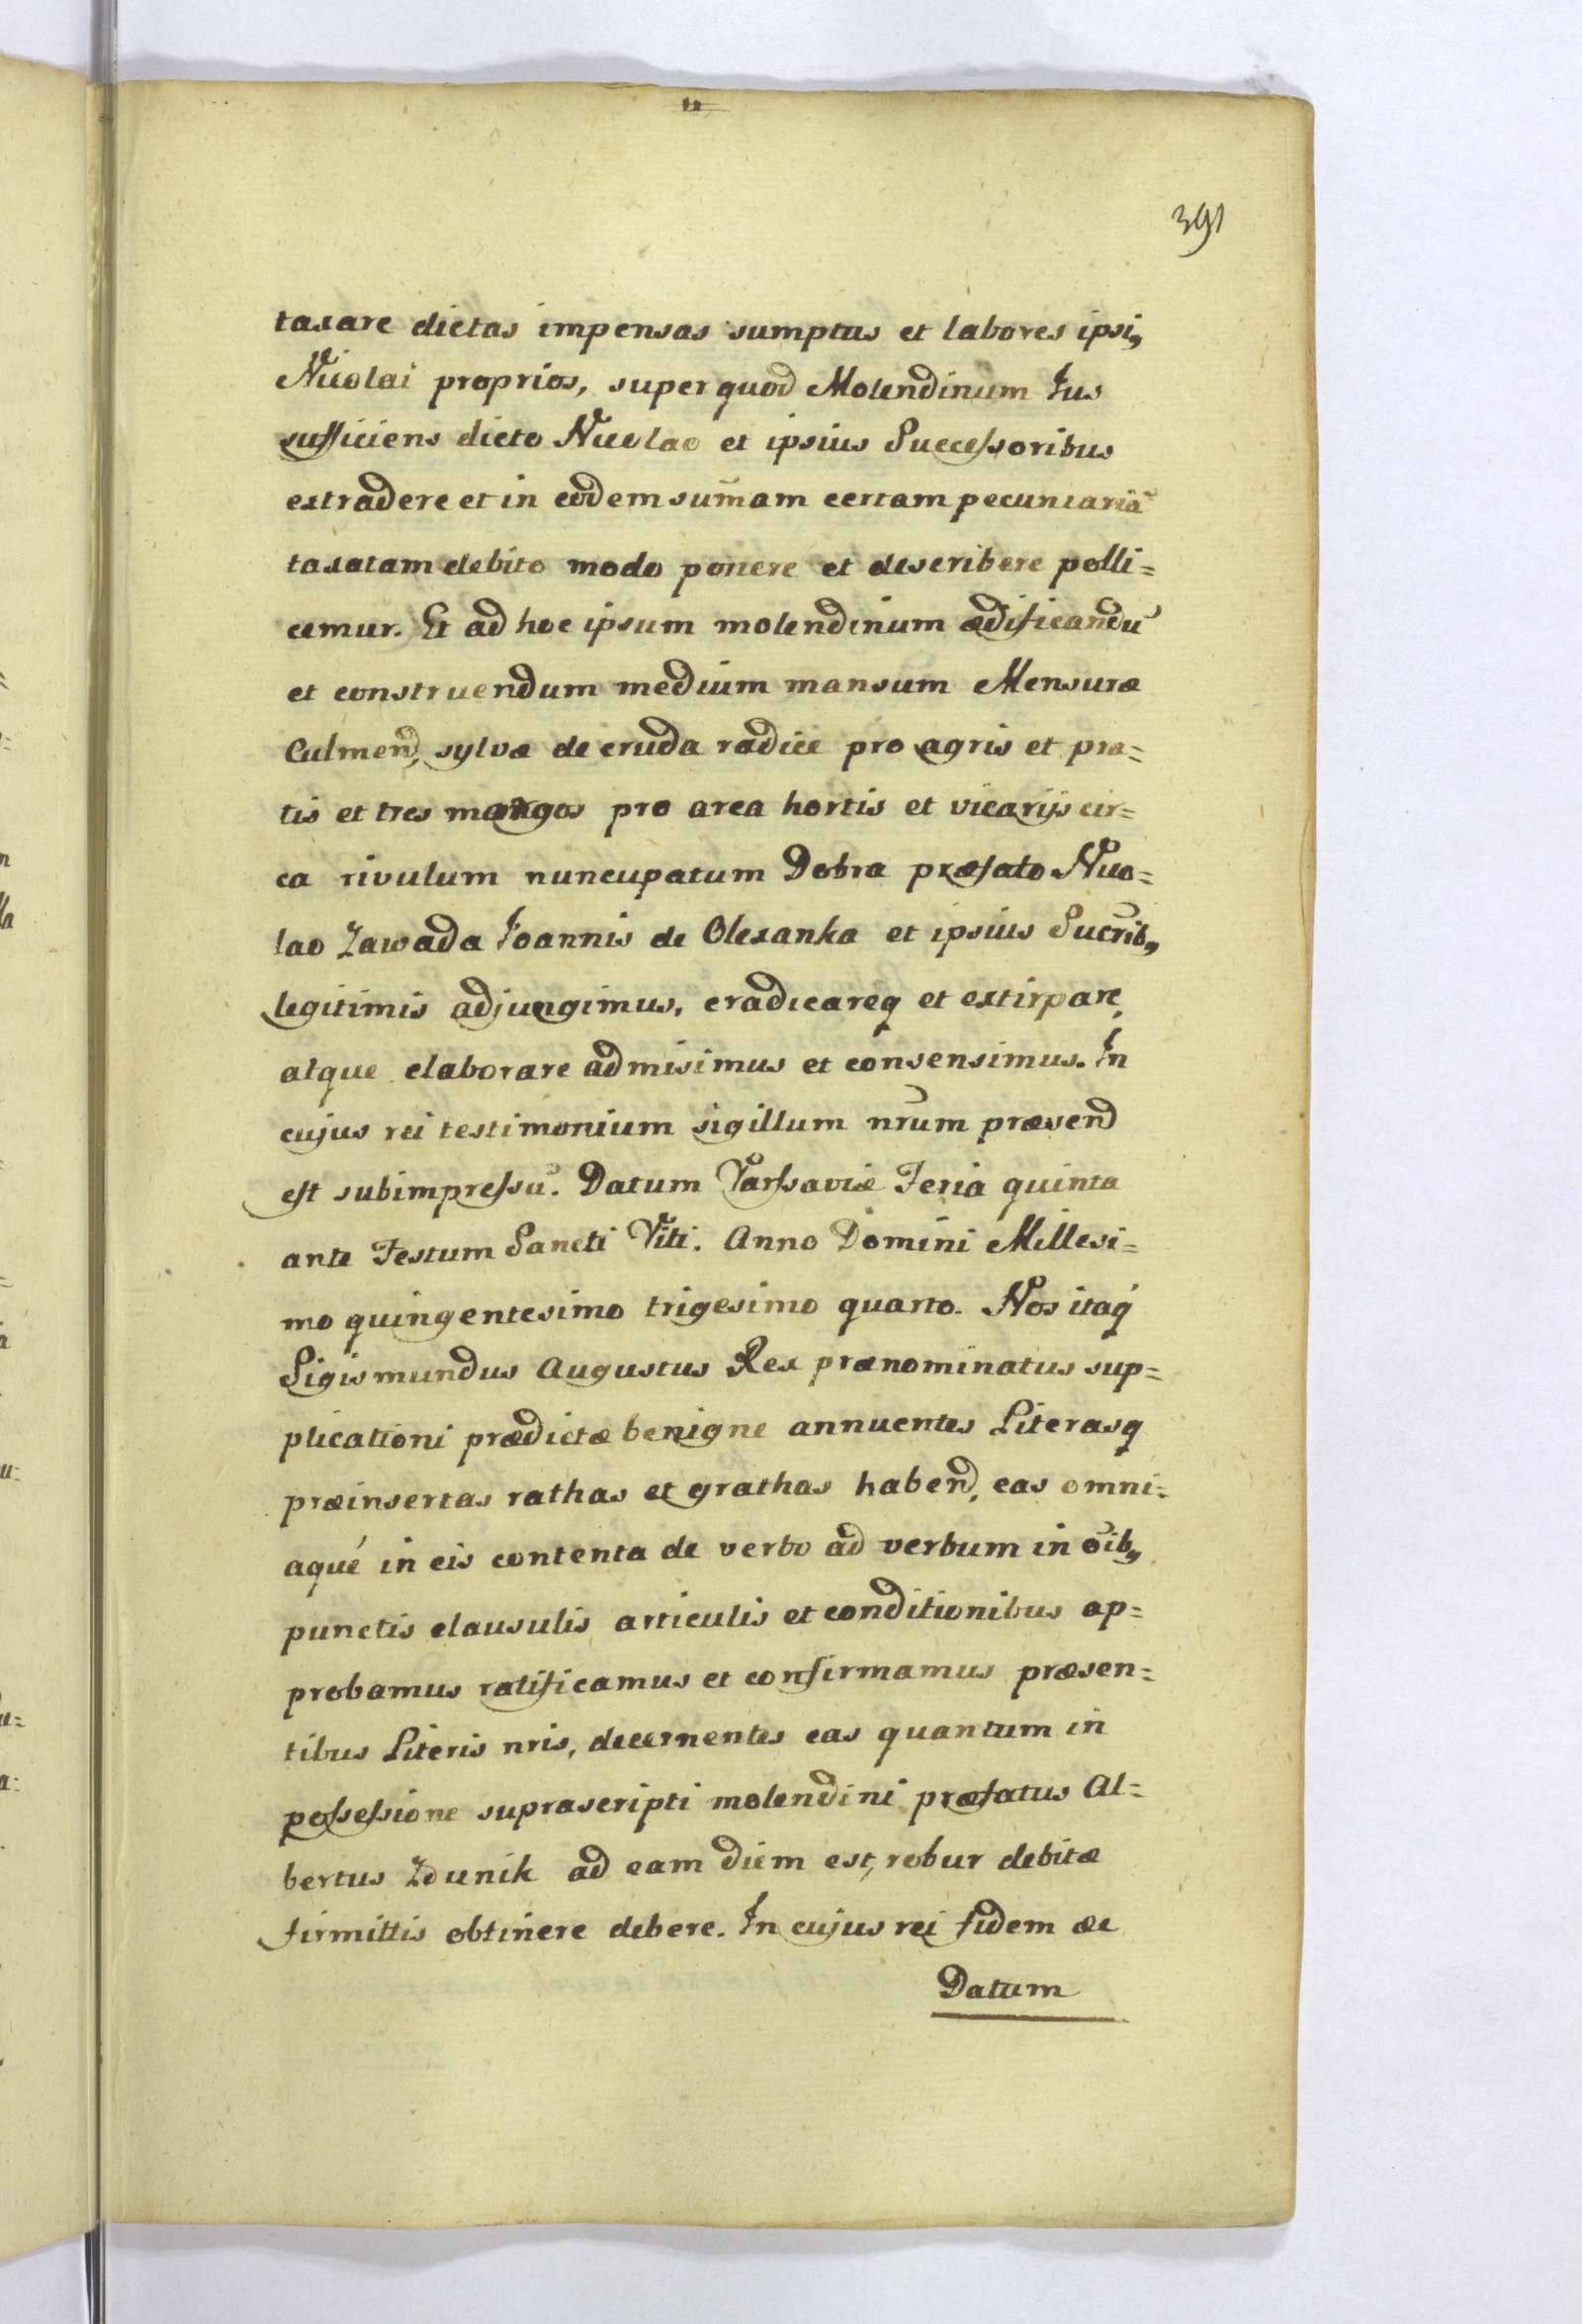 391
taxare dictas impensas sumptus et labores ipsi9
Nicolai proprios, super quod Molendinum Jus
sufficiens dicto Nicolao et ipsius Successoribus
extradere et in eodem sum̄am certam pecuniariā
taxatam debito modo ponere et describere polli=
cemur. Et ad hoc ipsum molendinum ædificandū
et construendum medium mansum Mensuræ
Culmen̄, sylvæ de cruda radice pro agris et pra=
tis et tres margos pro area hortis et vicarijs cir=
ca rivulum nuncupatum Dobra præfato Nico=
lao Zawada Joannis de Olexanka et ipsius Sucr̄ib9
legitimis adjungimus, eradicareq et extirpare,
atque elaborare admisimus et consensimus. In
cujus rei testimonium sigillum nr̄um præsen̄
est subimpressū. Datum Varsaviæ Feria quinta
ante Festum Sancti Viti. Anno Domini Millesi=
mo quingentesimo trigesimo quarto. Nos itaq́
Sigismundus Augustus Rex prænominatus sup=
plicationi prædictæ benigne annuentes Literasq
præinsertas rathas et grathas haben̄, eas omni=
aqué in eis contenta de verbo ad verbum in oīb9
punctis clausulis articulis et conditionibus ap=
probamus ratificamus et confirmamus præsen=
tibus Literis nris, decernentes eas quantum in
possessione suprascripti molendini præfatus Al=
bertus Zdunik ad eam diem est, robur debitæ
firmittis obtinere debere. In cujus rei fidem &c
Datum